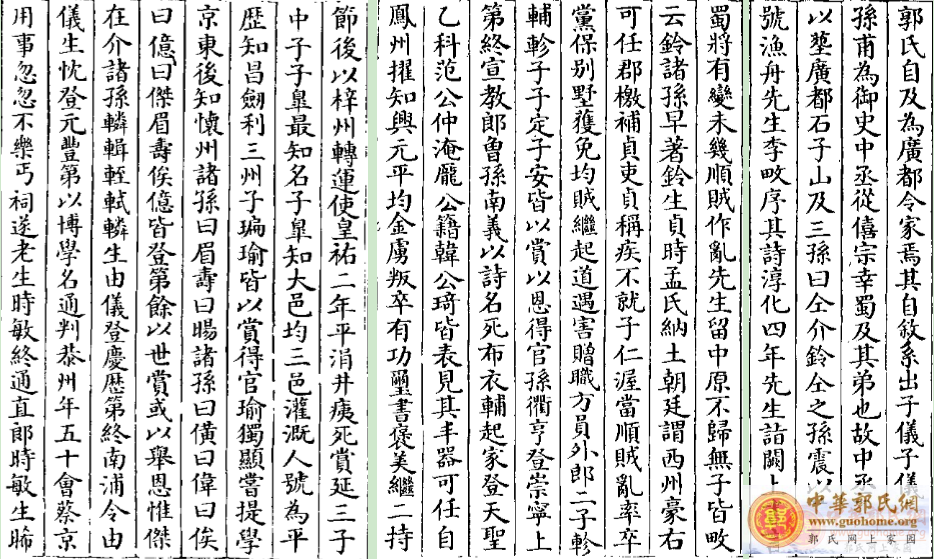 郭氏自及為廣都令家焉其自敘系出子儀子儀
孫甫為御史中丞從僖宗幸蜀及其弟也故中丞
以塟廣都石子山及三孫曰仝介鈴仝之孫震以
號漁舟先生李畋序其詩淳化四年先生詣闕上
蜀將有變未幾順賊作亂先生留中原不歸無子皆畋
云鈴諸孫早著鈴生貞時孟氏納土朝廷謂西州豪右
可任郡檄補貞吏貞稱疾不就子仁渥當順賊亂率卒
黨保别墅獲免均賊繼起道遇害贈職方員外郎二子軫
輔軫子子定子安皆以賞以恩得官孫衢亨登崇寧上
第終宣教郎魯孫南義以詩名死布衣輔起家登天聖
乙科范公仲淹龎公籍韓公琦皆表見其丰器可任自
鳳州擢知興元平均金虜叛卒有功璽書褒美繼二持
節後以梓州轉運使皇祐二年平淯井痍死賞延三子
中子子臯最知名子臯知大邑均三邑灌溉人號為平
歴知昌劒利三州子瑜瑜皆以賞得官瑜獨顯嘗提學
京東後知懷州諸孫曰眉壽曰暘諸孫曰僙曰偉曰俟
曰億曰傑眉壽俟億皆登第餘以世賞或以舉恩惟傑
在介諸孫轔輯輊軾轔生由儀登慶歴第終南浦令由
儀生忱登元豐第以博學名通判恭州年五十會蔡京
用事忽忽不樂丐祠遂老生時敏終通直郎時敏生睎
中華郭氏網
www.guohome.org
郭氏網上家園